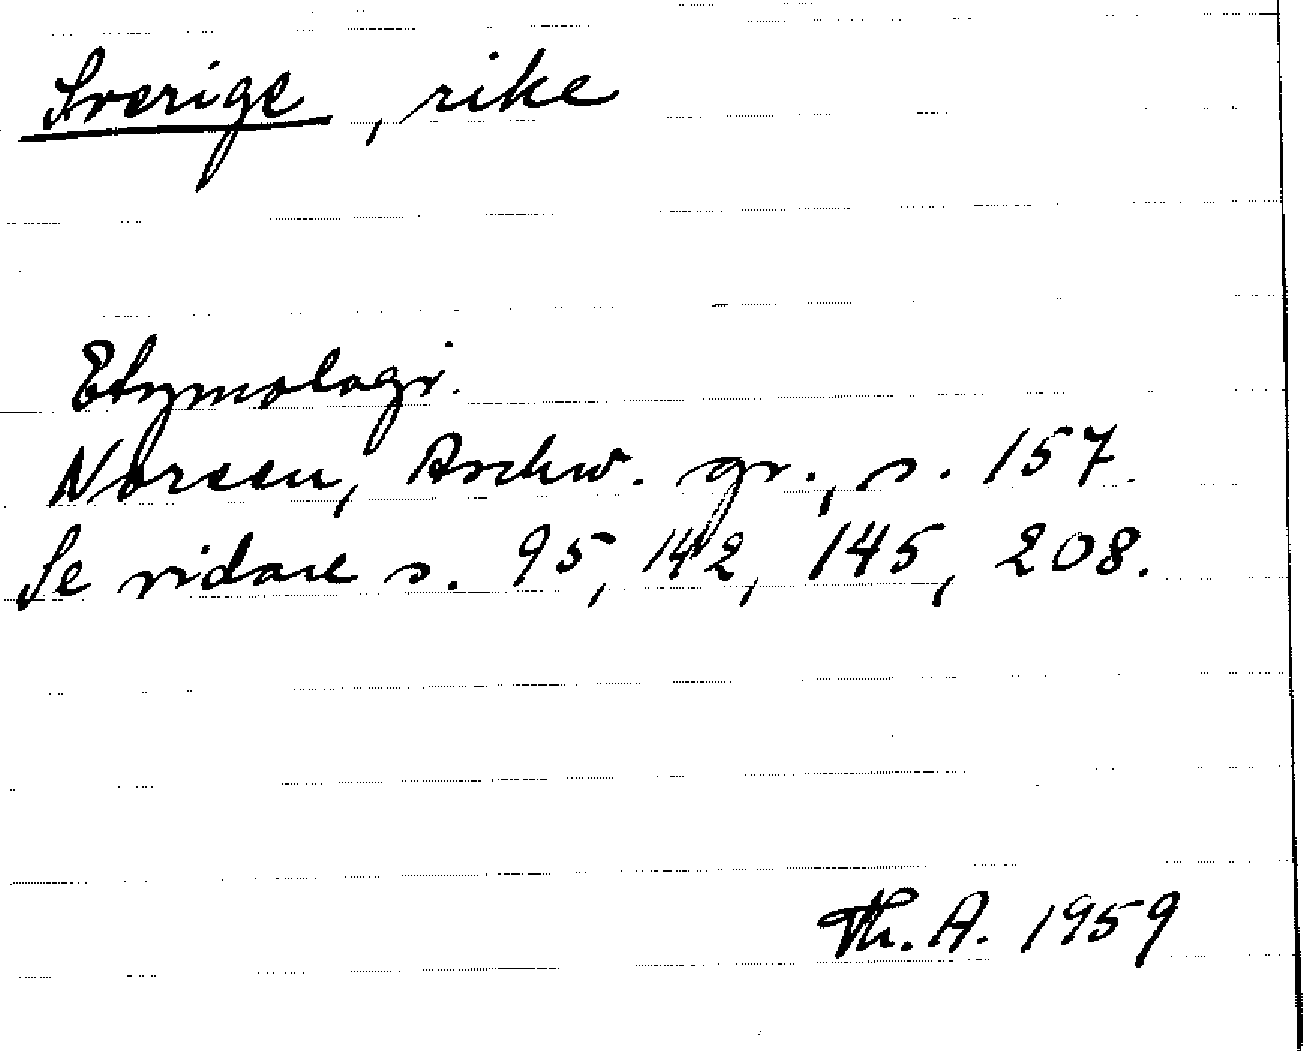 Sverige, rike
Etymologi.
Noreen, Aschw. gr., s. 157.
Se vidare s. 95, 142, 145, 208.
Th. A. 1959